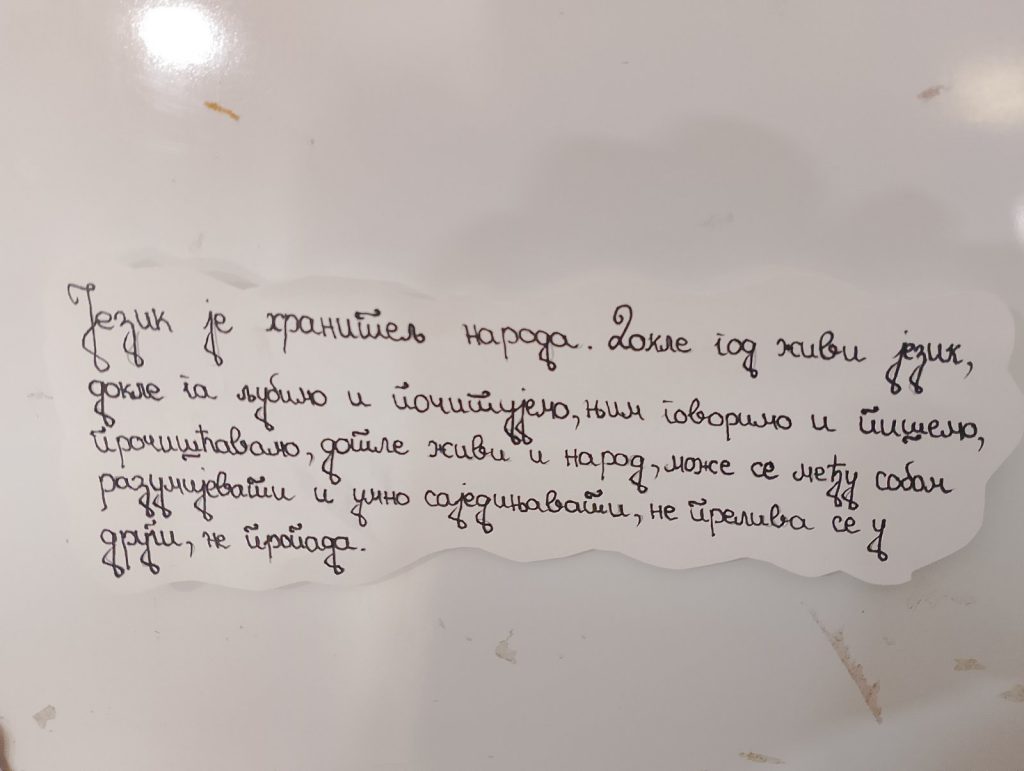 Језик је хранитељ народа. Докле год живи језик,
докле га љубимо и почитујемо, њим говоримо и пишемо,
прочишћавамо, дотле живи и народ, може се међу собом
разумијевати и умно саједињавати, не прелива се у
други, не пропада.